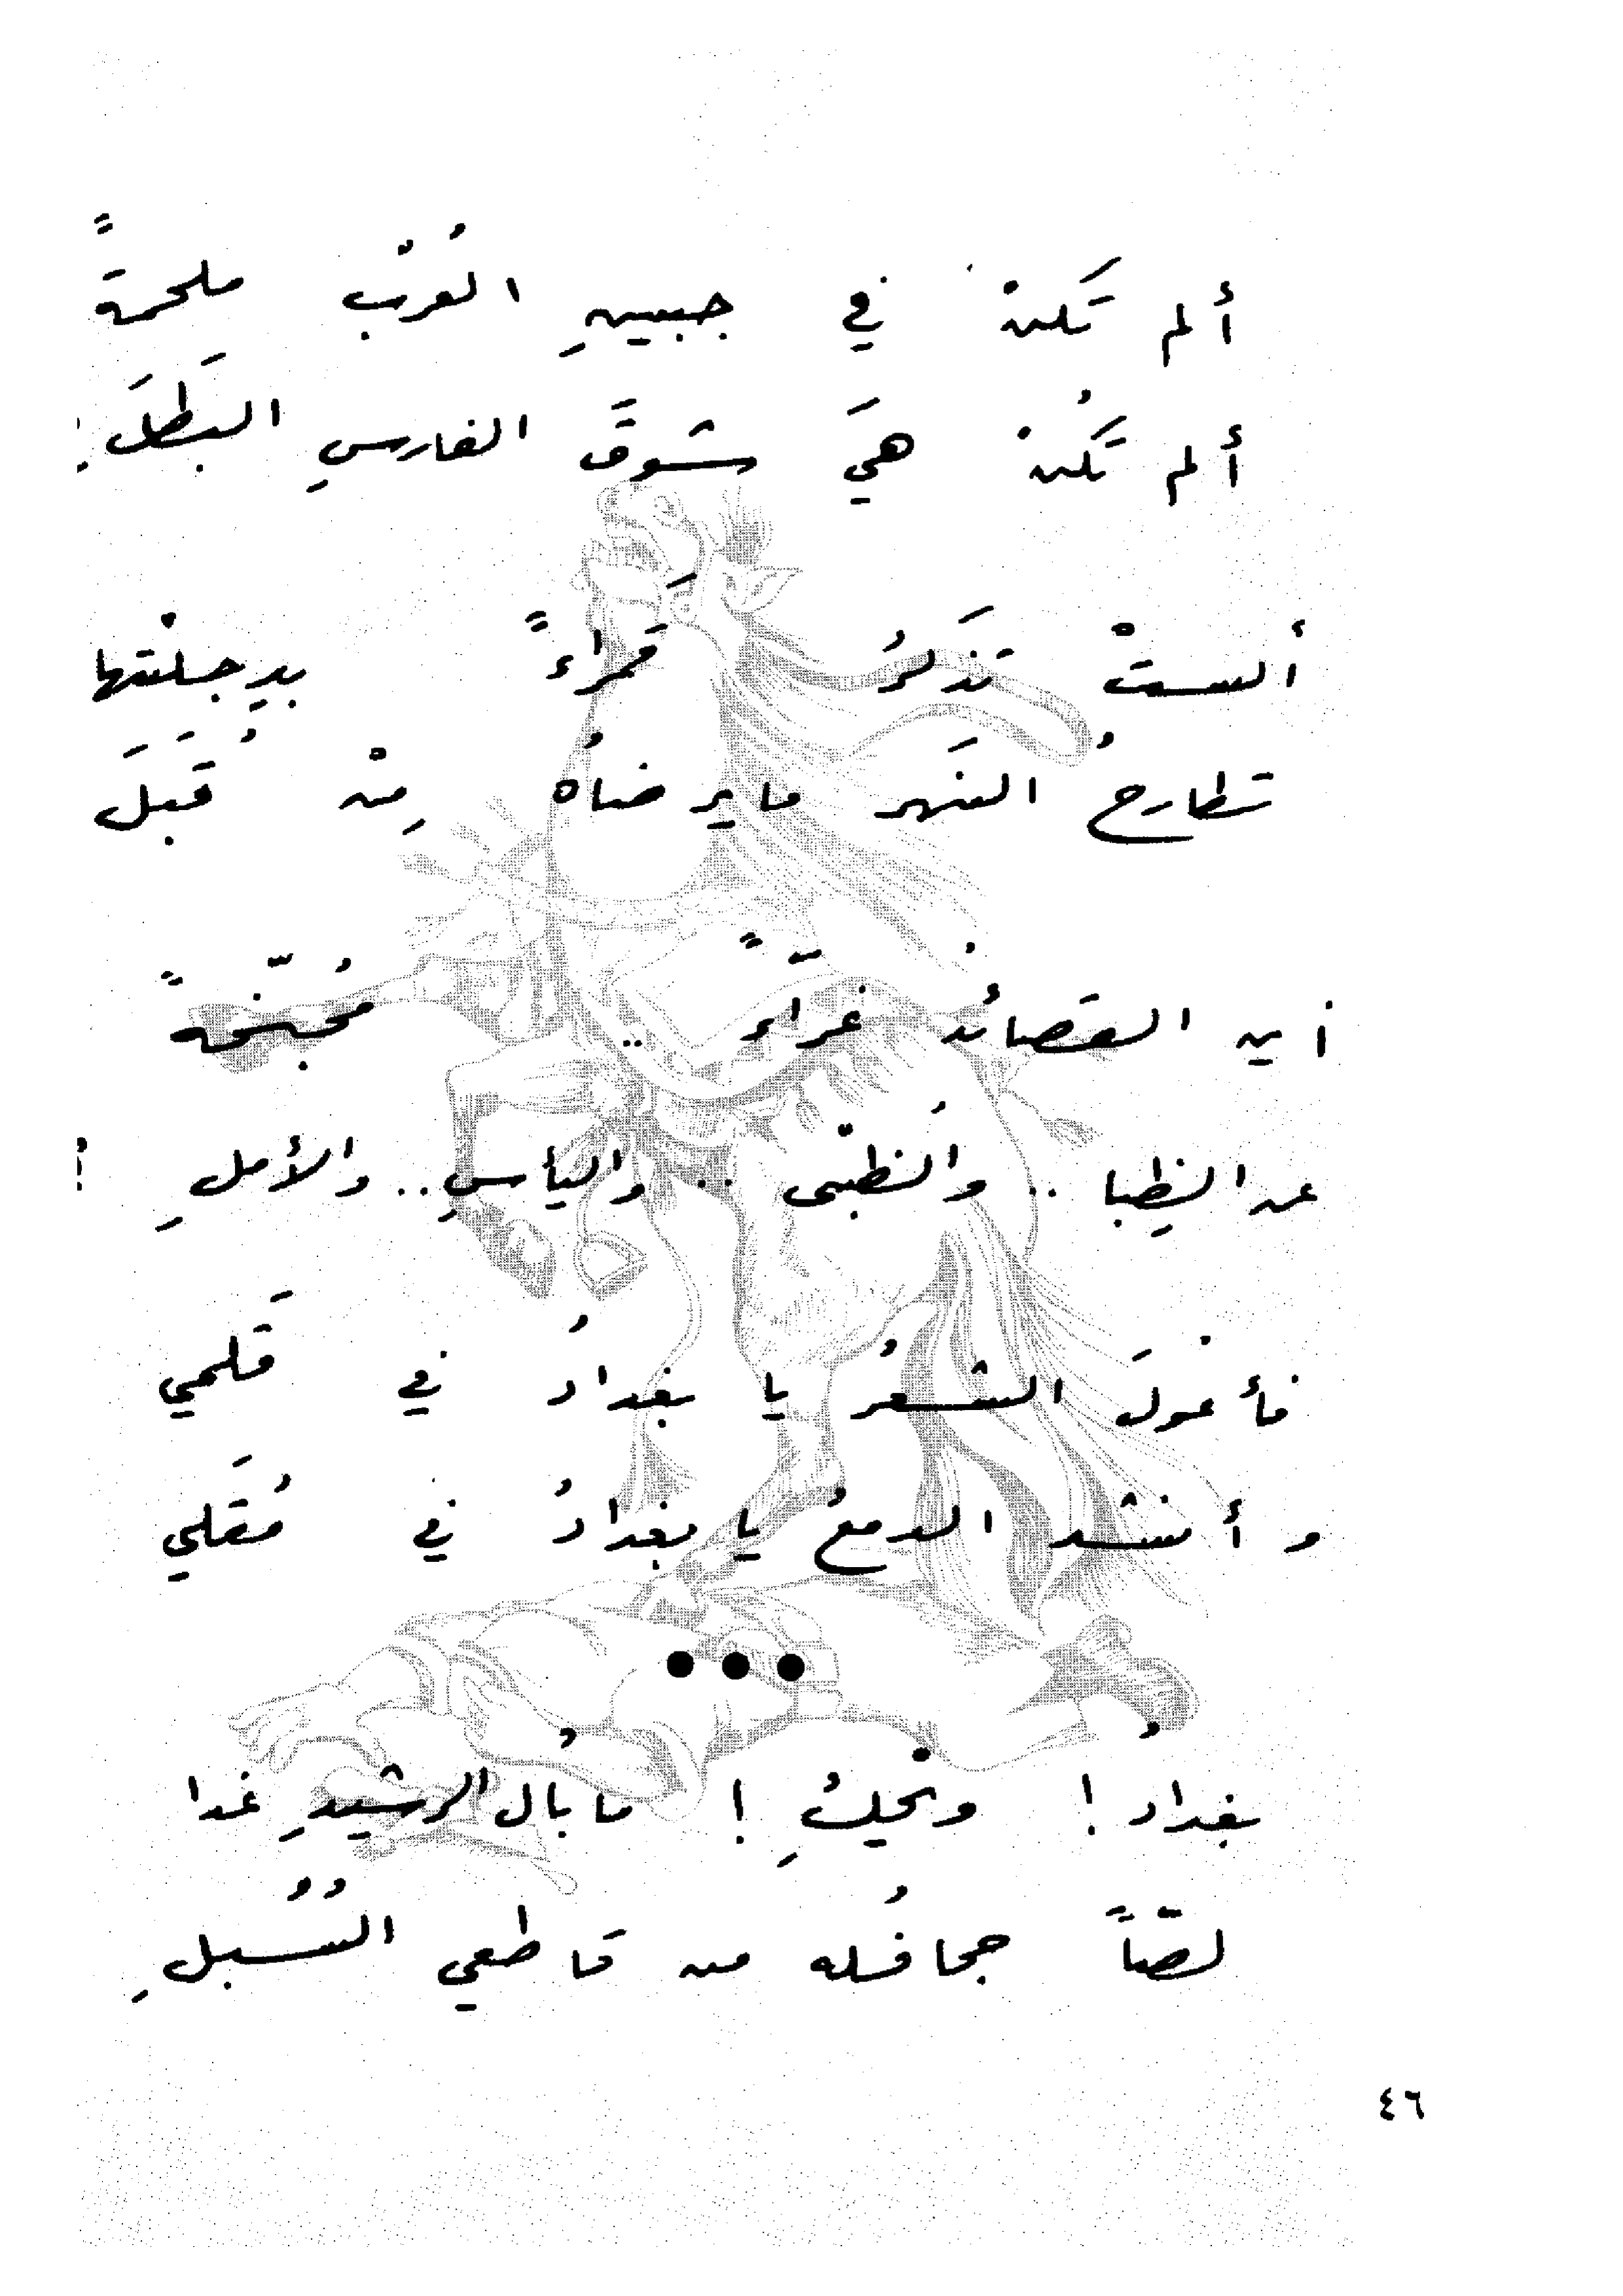 ألم تَكنْ في جبينِ العُرْب ملحمةً
ألم تَكُنْ هيَ شوقَ الفارسِ البَطَلِ !
ألستْ تذكَرُ قَمراءً بدِجلْتها
تطارحُ النهَر ما يرضاهُ مِنْ قُبَلَ
أين القصائدُ غرّاءً .. مُجنّحةً
عن الظِبا .. والُظبّى .. واليأسِ .. والأملِ ؟!
فأعْولَ الشعرُ يا بغدادُ في قَلمي
وأنشد الدمعُ يا بغدادُ في مُقَلي
•••
بغدادُ ! ويْحكُِ ! ما بالُ الرشيدِ غدا
لصّاً جحافُله من قاطعي السُبُلِ
٤٦